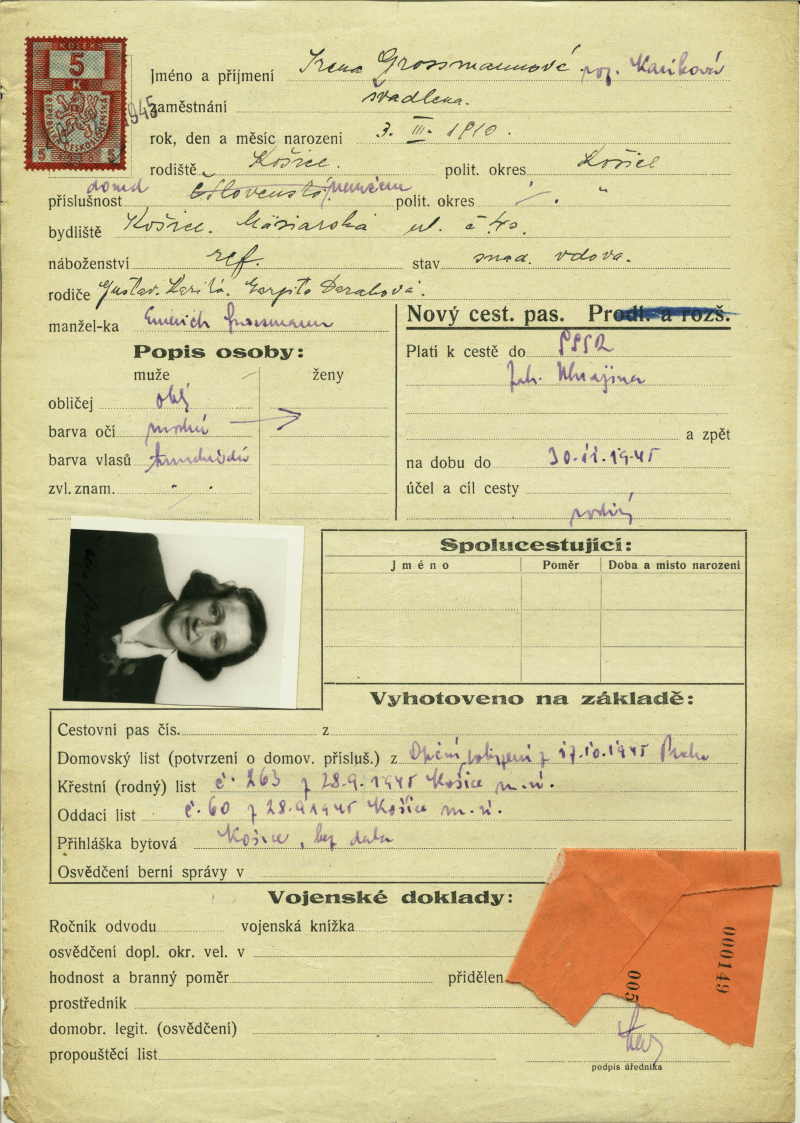 KOLEK
5
K
REPUBLIKA ČESKOSLOVENSKÁ
5 1938 5
1945
Jméno a příjmení Irena Grossmannová roz.
zaměstnání švadlena.
rok, den a měsíc narozeni 3. III. 1910.
rodiště Košice. polit. okres Košice
příslušnost polit. okres "
bydliště Košice. Mäsiarská ul. č 40.
náboženství ref. stav vdova.
rodiče Gustav
manžel-ka Emerich Grossmann
Nový cest. pas. Prodl. a rozš.
Popis osoby:
muže ženy
obličej
barva očí modrá
barva vlasů
zvl. znam. " "
Platí k cestě do SSSR
Zak. Ukrajina
a zpět
na dobu do 30.11.1945
účel a cíl cesty
Spolucestující:
Jméno Poměr Doba a místo narozeni
Vyhotoveno na základě:
Cestovni pas čís. z
Domovský list (potvrzení o domov. přísluš.) z Opční z 17.10.1945 Praha
Křestní (rodný) list č. 263 z 28.9.1945 Košice m.ú.
Oddací list č. 60 z 28.9.1945 Košice m.ú.
Přihláška bytová Košice, bez data
Osvědčení berní správy v
Vojenské doklady:
Ročník odvodu vojenská knížka
osvědčení dopl. okr. vel. v
hodnost a branný poměr přidělen
prostředník
domobr. legit. (osvědčení)
propouštěcí list
podpis úředníka
000149
005